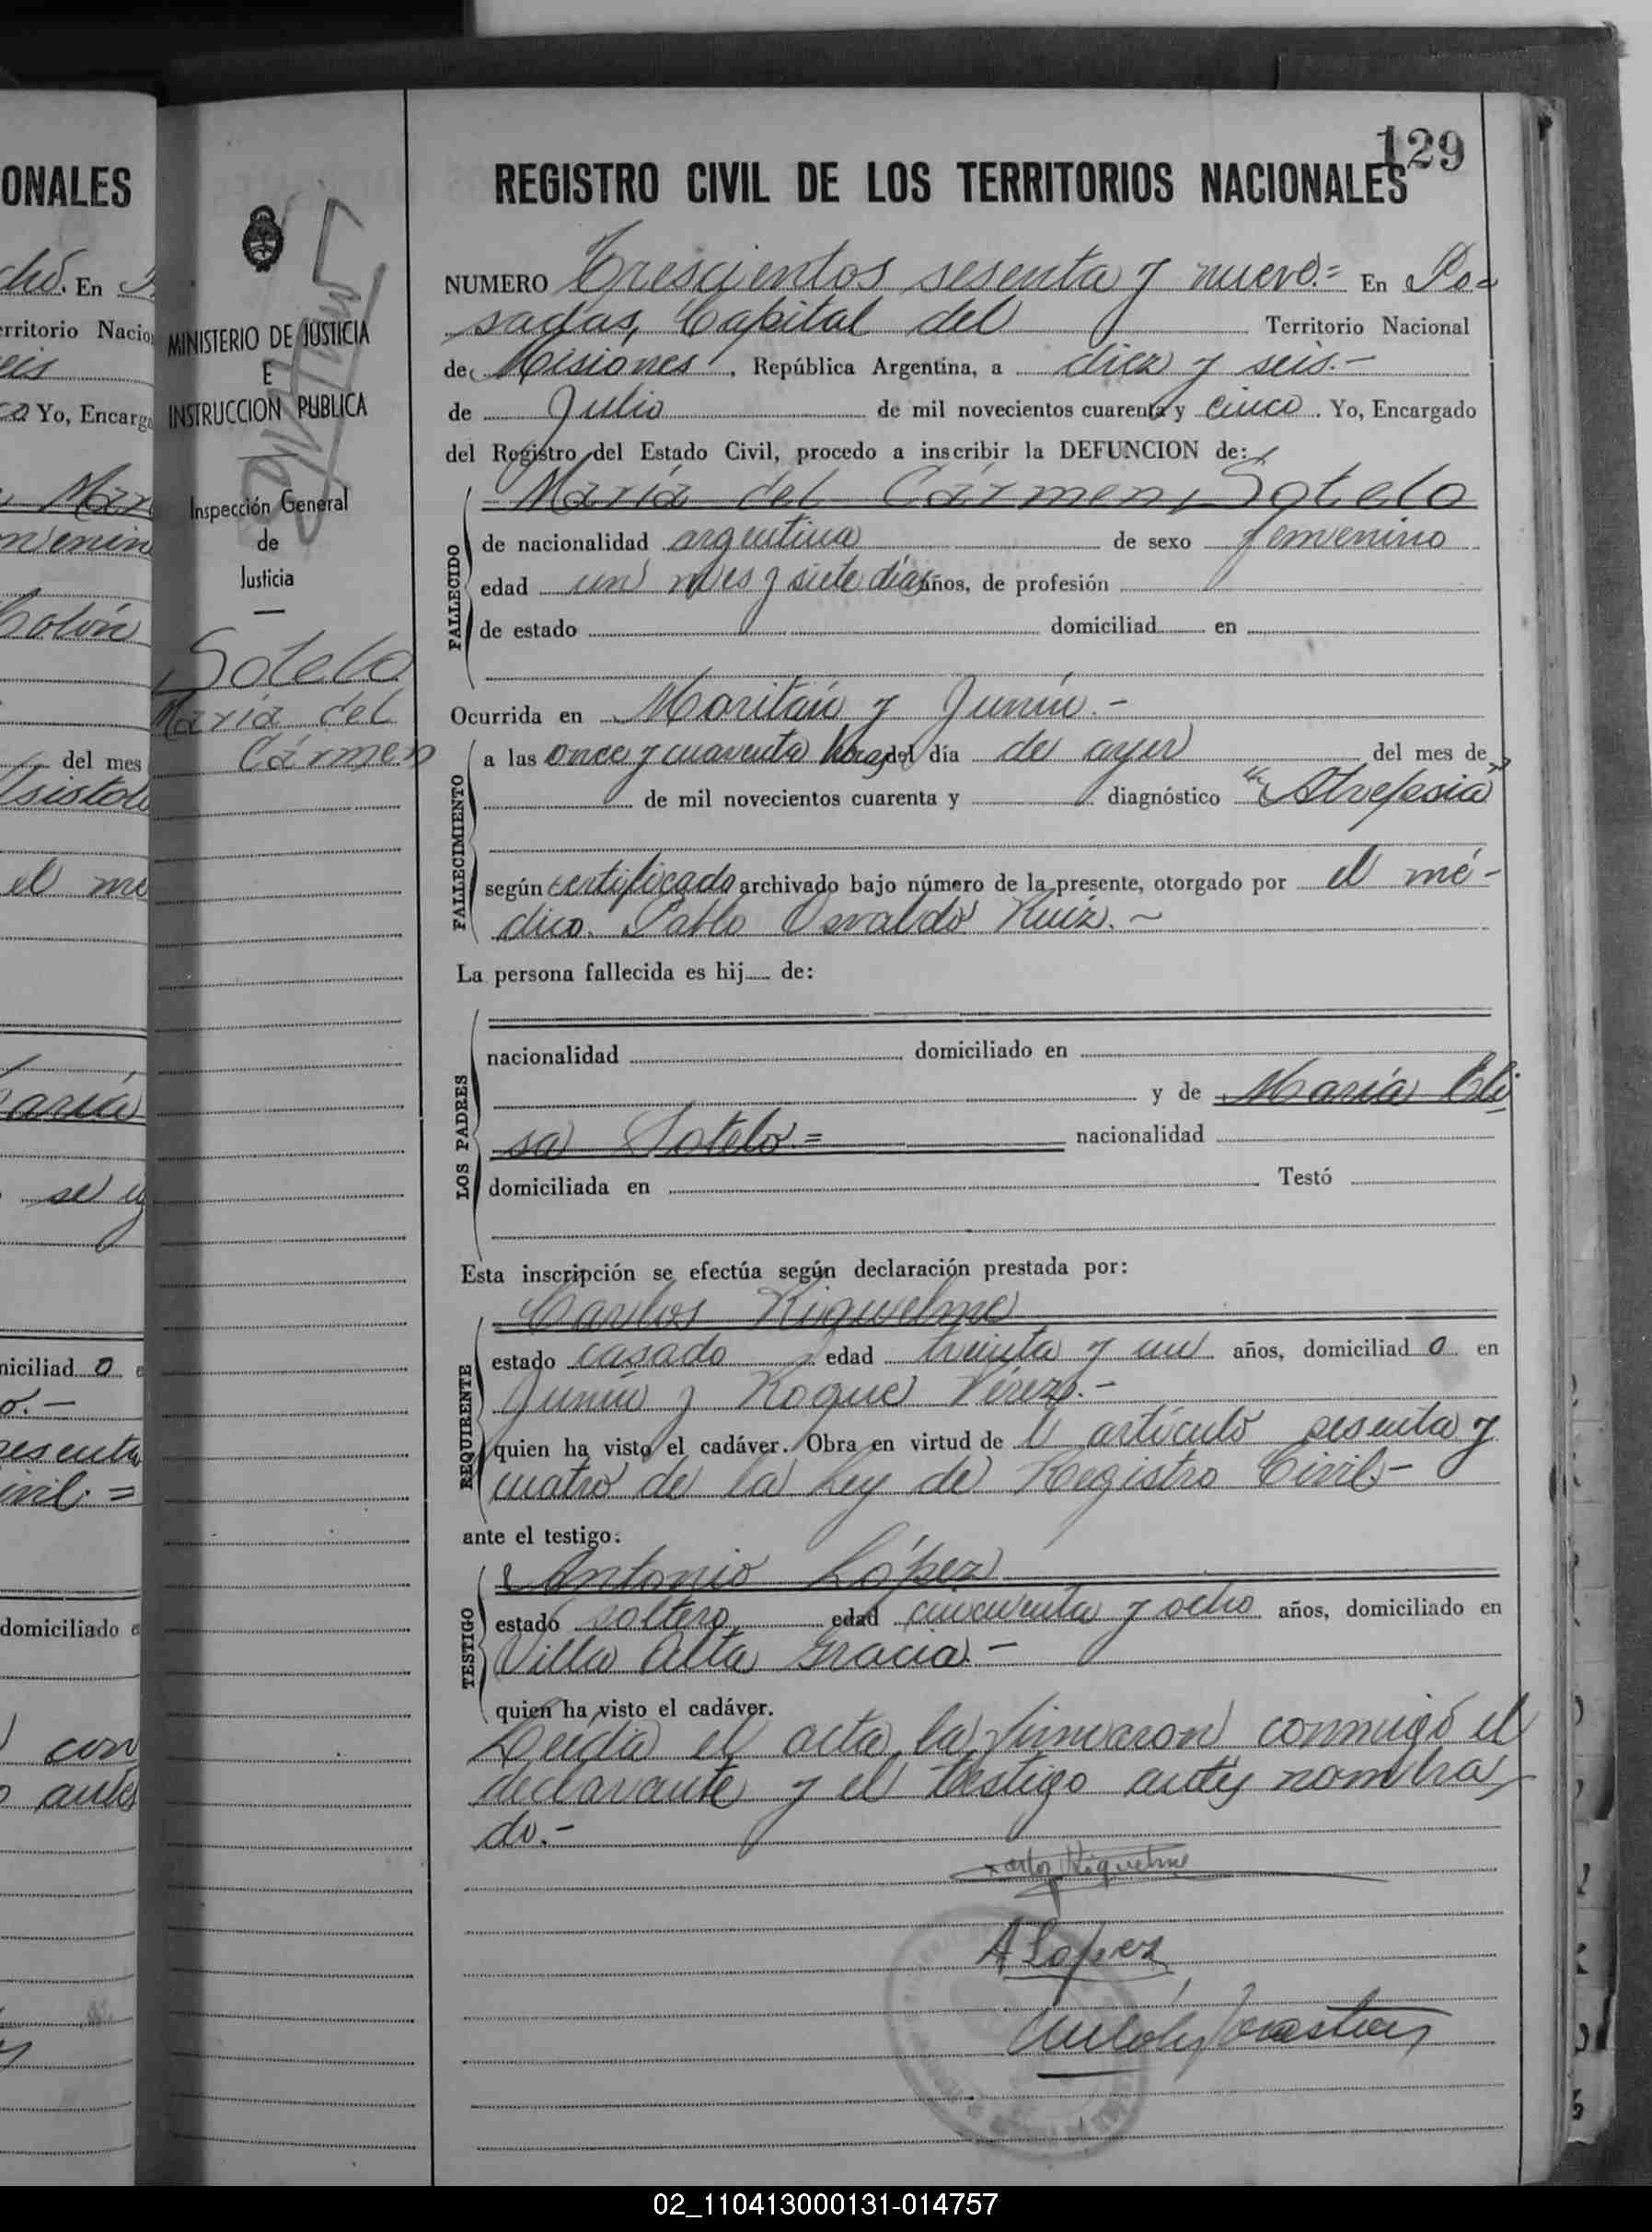 129
REGISTRO CIVIL DE LOS TERRITORIOS NACIONALES
NUMERO Trescientos sesenta y nueve.= En Po=
sadas, Capital del Territorio Nacional
de Misiones, República Argentina, a diez y seis.-
de Julio de mil novecientos cuarenta y cinco. Yo, Encargado
del Registro del Estado Civil, procedo a inscribir la DEFUNCION de:
María del Cármen Sotelo
FALLECIDO
de nacionalidad argentina de sexo femenino
edad un mes y siete días años, de profesión
de estado domiciliad en
Ocurrida en Moritán y Junín.-
FALLECIMIENTO
a las once y cuarenta horas del día de ayer del mes de
de mil novecientos cuarenta y diagnóstico "Atrepsia"
según certificado archivado bajo número de la presente, otorgado por el mé-
dico. Pablo Osvaldo Ruiz.~
La persona fallecida es hij de:
LOS PADRES
nacionalidad domiciliado en
y de María Eli
sa Sotelo= nacionalidad
domiciliada en Testó
Esta inscripción se efectúa según declaración prestada por:
Carlos Riquelme
REQUIRENTE
estado casado edad treinta y un años, domiciliad o en
Junín y Roque Pérez.-
quien ha visto el cadáver. Obra en virtud del artículo sesenta y
cuatro de la Ley de Registro Civil.-
ante el testigo:
Antonio López
TESTIGO
estado soltero edad cincuenta y ocho años, domiciliado en
Villa Alta Gracia.-
quien ha visto el cadáver.
Leída el acta, la firmaron conmigo el
declarante y el testigo antes nombra
do.-
Carlos Riquelme
A López
MINISTERIO DE JUSTICIA
E
INSTRUCCION PUBLICA
Inspección General
de
Justicia
Sotelo
María del
Cármen
ONALES
En
erritorio Nacio
eis
Yo, Encarg
Mar
menin
Colón
del mes
el mé
aría
se
niciliad o
o.-
esenta
ivil.=
domiciliado
con
antes
02_110413000131-014757